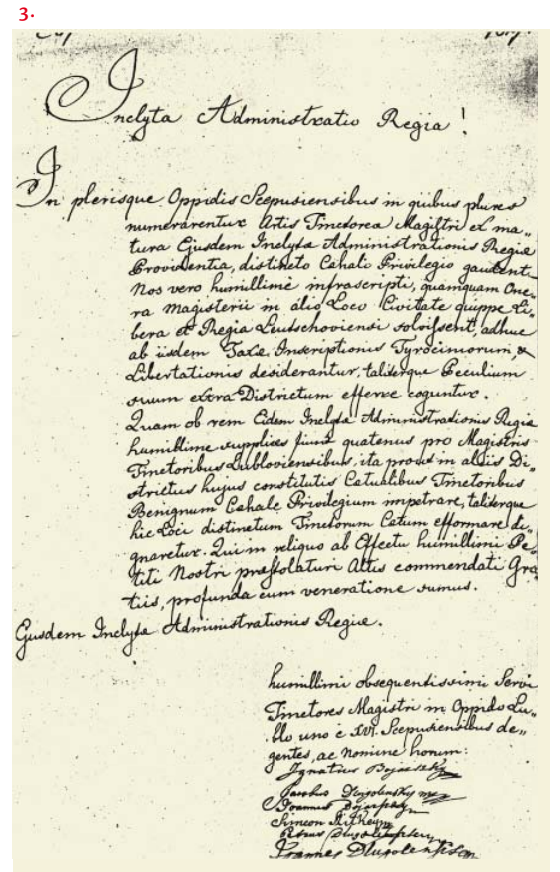 3.
Inclyta Administratio Regia!
In plerisque Oppidis Scepusiensibus in quibus plures
numerarentur Artis Tinctorea Magistri ex ma„
tura Ejusdem Inclyta Administrationis Regiæ
Providentia, distincto Cahali Privilegio gaudent.
Nos vero humillime infrascripti, quamquam One„
ra Magisterii in alio Loco Civitate quippe Li„
bera et Regia Leutschoviensi solvissent, adhuc
ab iisdem Taxæ Inscriptionis Tyrociniorum, &
Libertationis desiderantur, taliterque Peculium
suum extra Districtum efferre coguntur.
Quam ob rem Eidem Inclyta Administrationis Regia
humillime supplices fiunt quatenus pro Magistris
Tinctoribus Lubloviensibus, ita prout in aliis Di„
strictus hujus constitutis Catualibus Tinctoribus
Benignum Cahale Privilegium impetrare, taliterque
hic Loci distinctum Tinctorum Catum efformare di„
gnaretur. Qui in reliquo ab Effectu humillimi Pe„
titi Nostri præstolaturi Altis commendati Gra„
tiis, profunda cum veneratione sumus.
Ejusdem Inclyta Administrationis Regiæ.
humillimi obsequentissimi Servi
Tinctores Magistri in Oppido Lu„
blo uno e XVI. Scepusiensibus de„
gentes, ac Nomine horum:
Ignatius
Jacobus
Joannes
Simeon
Petrus
Joannes